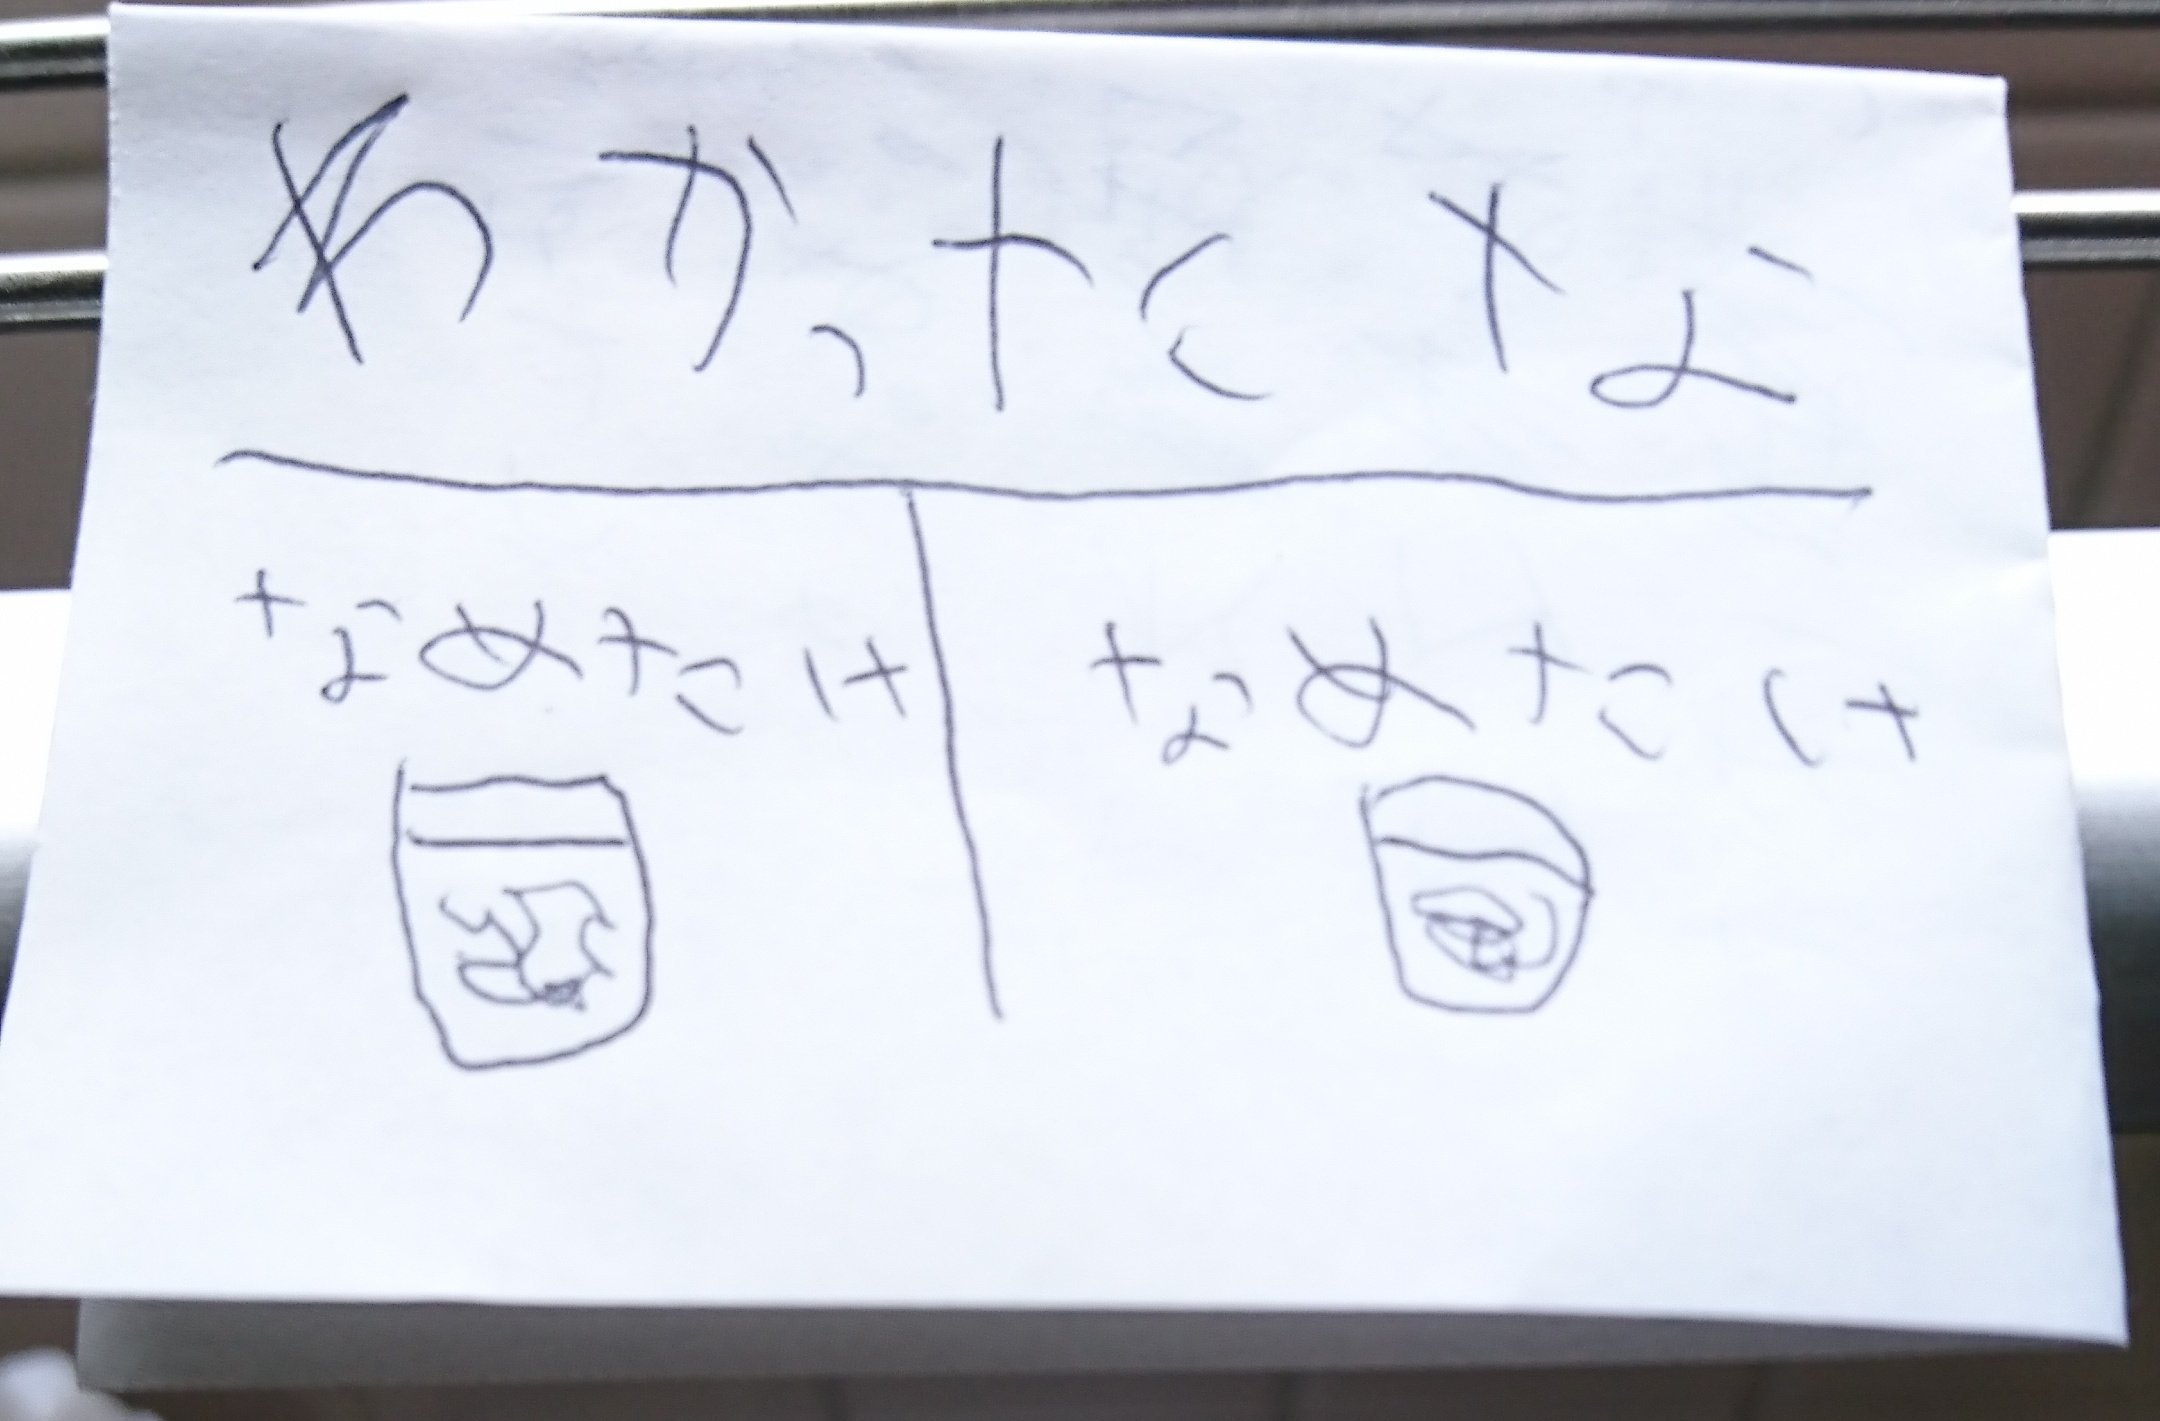 わかったな
なめたけ
なめたけ